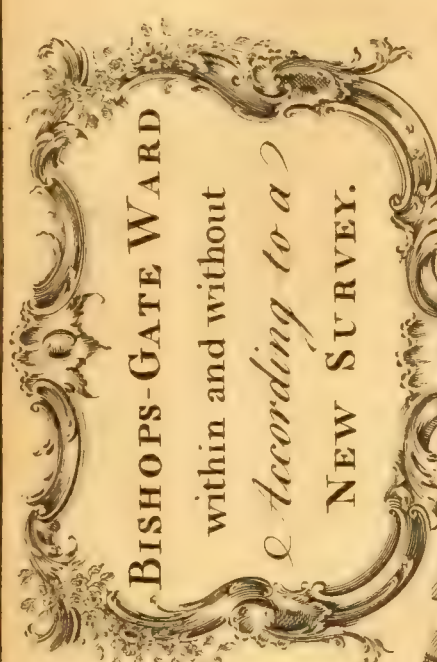 BISHOPS-GATE WARD
within and without
According to a
NEW SURVEY.